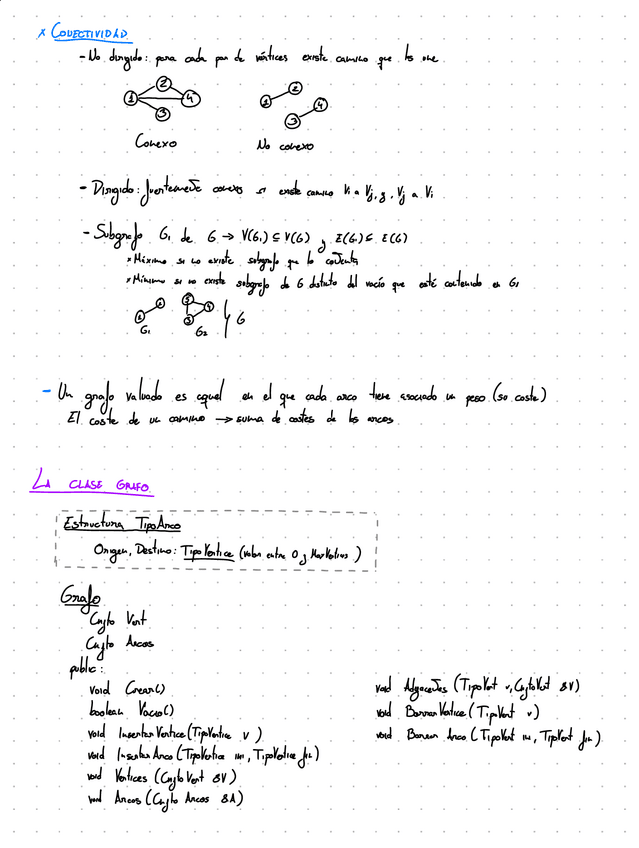 * CONECTIVIDAD
- No dirigido: para cada par de vértices existe camino que los une
1 2 3 4
1 2 3 4
Conexo
No conexo
- Dirigido: fuertemente conexo si existe camino Vi a Vj, y, Vj a Vi
- Subgrafo G1 de G → V(G1) ⊆ V(G) y E(G1) ⊆ E(G)
* Máximo si no existe subgrafo que lo contenta
* Mínimo si no existe subgrafo de G distinto del vacío que esté contenido en G1
G1
G2
G
- Un grafo valuado es aquel en el que cada arco tiene asociado un peso (so coste)
El coste de un camino → suma de costes de los arcos
LA CLASE GRAFO
Estructura TipoArco
Origen, Destino: TipoVertice (valor entre 0 y )
Grafo
Cnjto Vert
Cnjto Arcos
public:
void Crear()
boolean Vacio()
void InsertarVertice(TipoVertice v)
void InsertarArco (TipoVertice ini, TipoVertice fin)
void Vertices (CnjtoVert &V)
void Arcos (Cnjto Arcos &A)
void Adyacentes (TipoVert v, CnjtoVert &V)
void BorrarVertice (TipoVert v)
void Borrar Arco (TipoVert ini, TipVert fin)